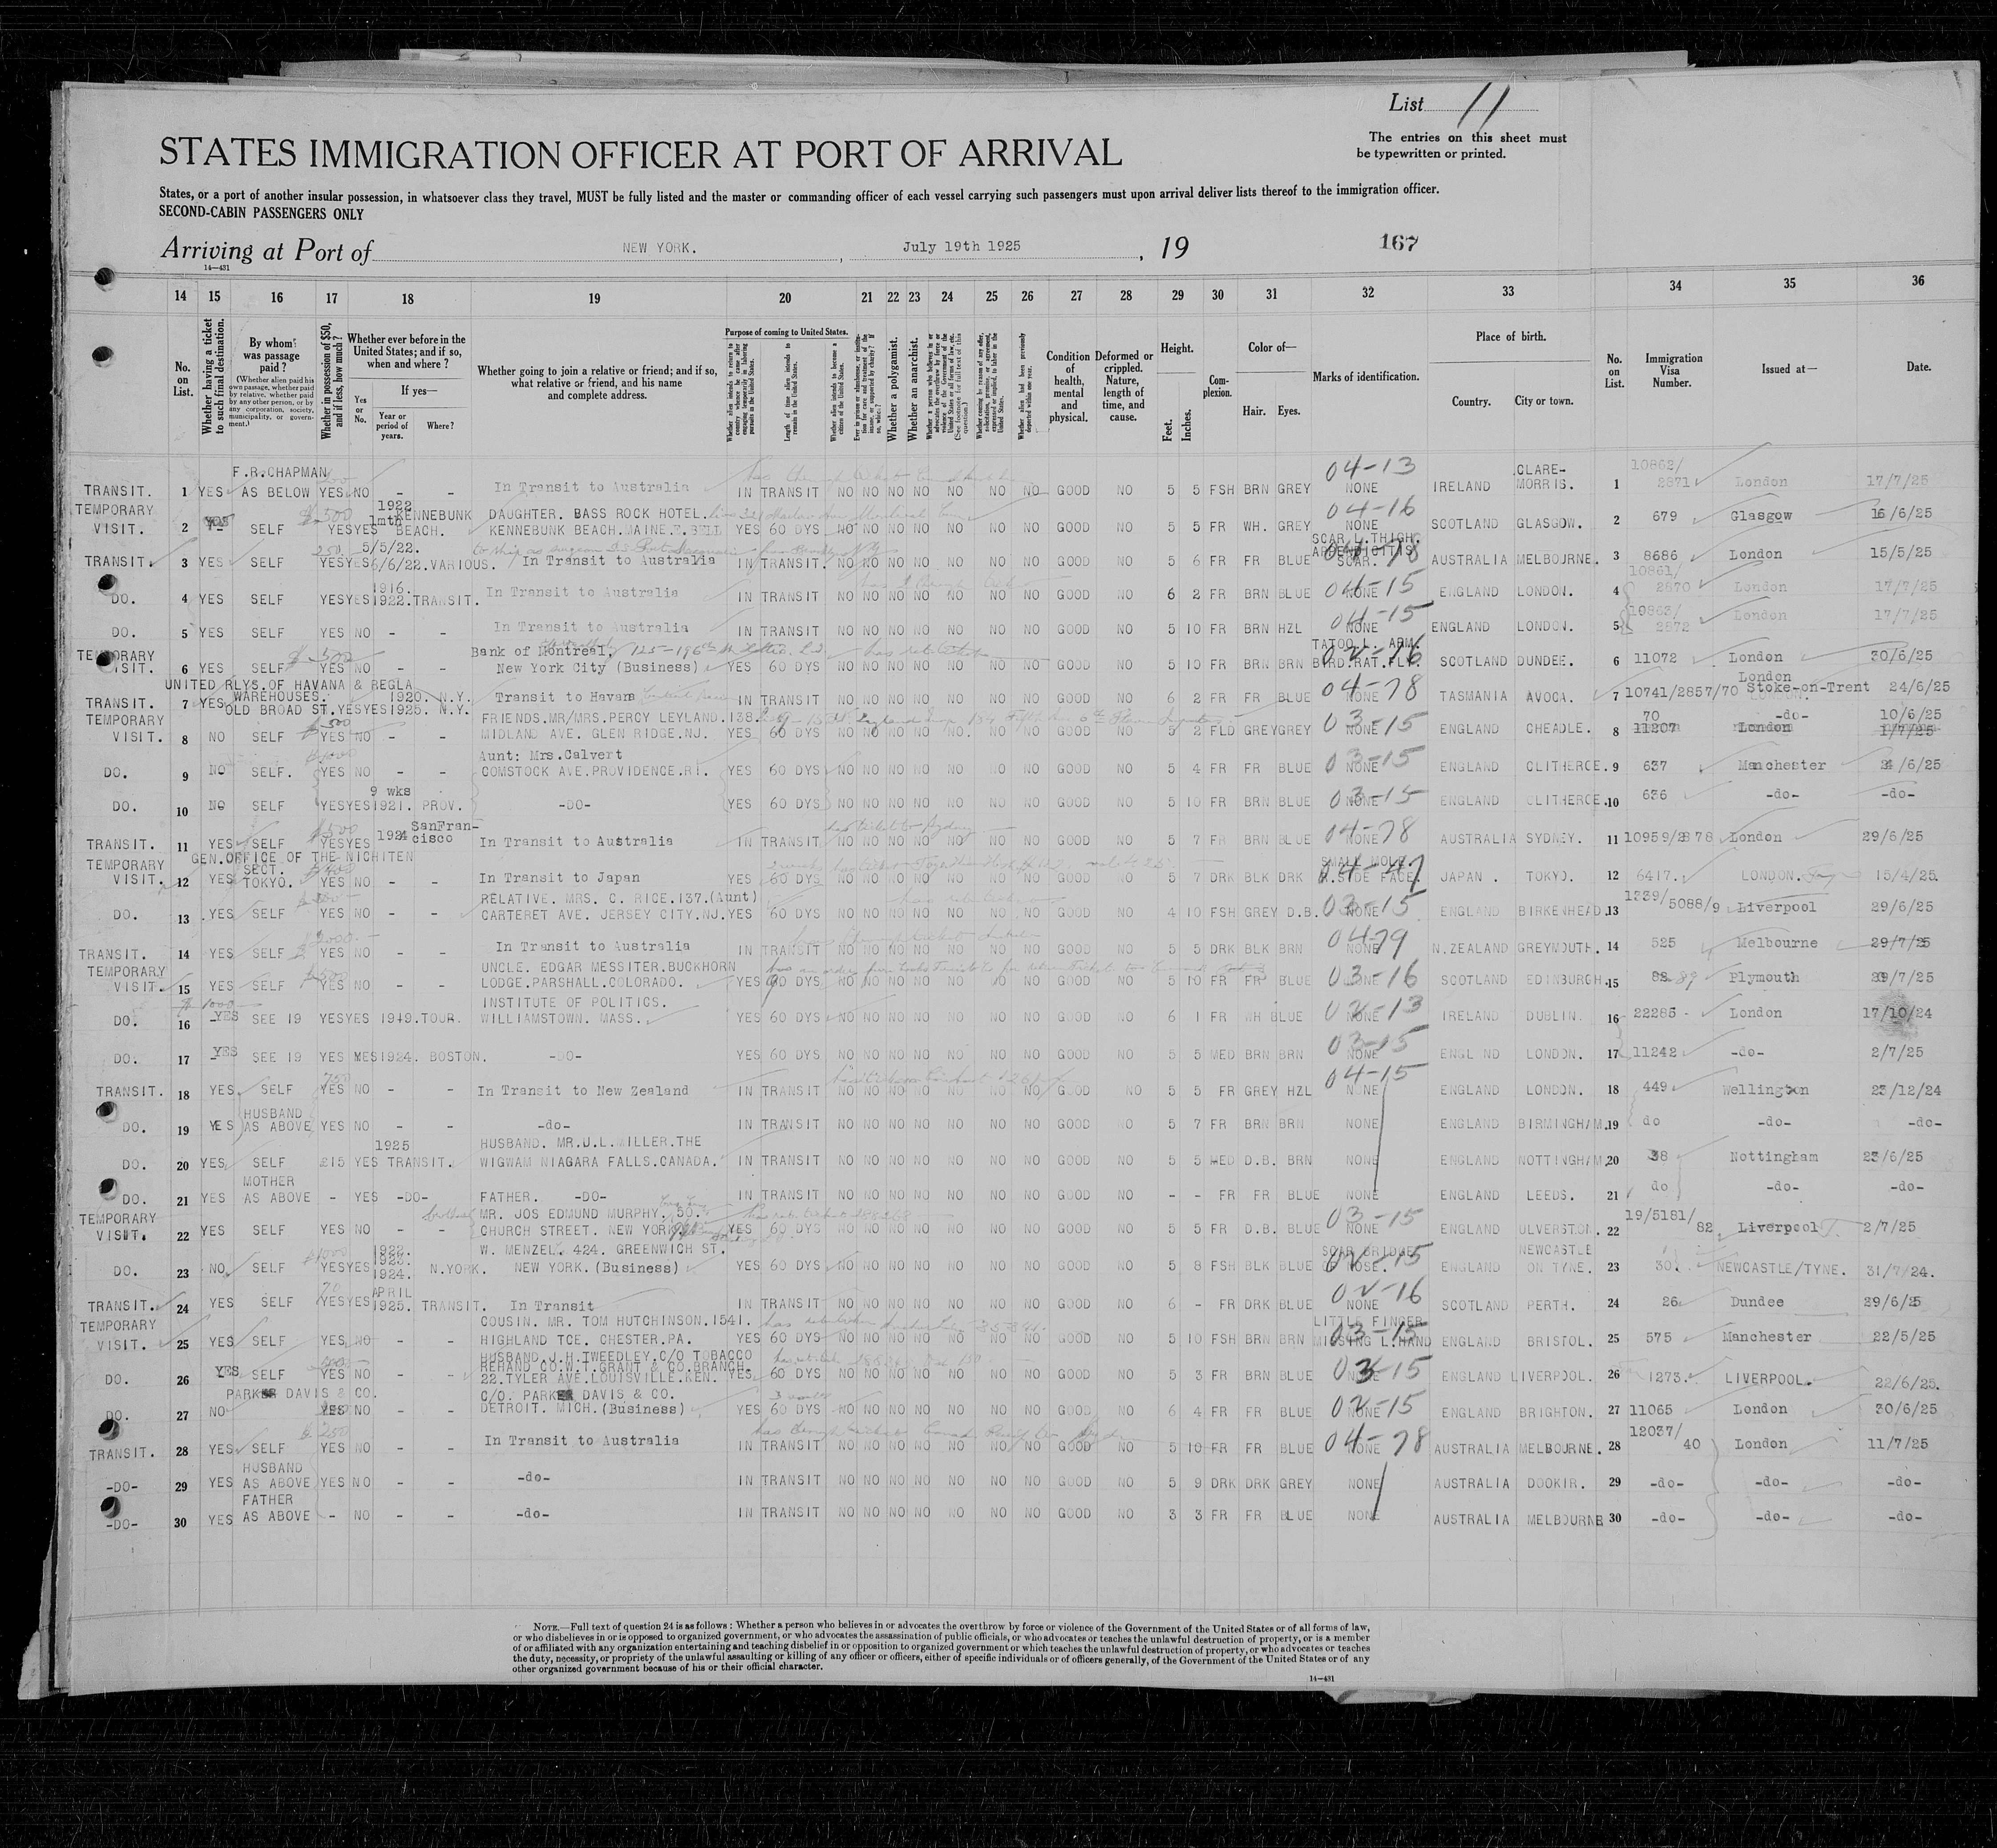 List 11
The entries on this sheet must
be typewritten or printed.
STATES IMMIGRATION OFFICER AT PORT OF ARRIVAL
States, or a port of another insular possession, in whatsoever class they travel, MUST be fully listed and the master or commanding officer of each vessel carrying such passengers must upon arrival deliver lists thereof to the immigration officer.
SECOND-CABIN PASSENGERS ONLY
Arriving at Port of NEW YORK. , July 19th 1925 , 19 167
14—431
14 15 16 17 18 19 20 21 22 23 24 25 26 27 28 29 30 31 32 33 34 35 36
No. on List.
Whether having a ticket to such final destination.
By whom was passage paid?
(Whether alien paid his own passage, whether paid by relative, whether paid by any other person, or by any corporation, society, municipality, or government.)
Whether in possession of $50, and if less, how much?
Whether ever before in the United States; and if so, when and where?
Yes or No.
If yes—
Year or period of years.
Where?
Whether going to join a relative or friend; and if so, what relative or friend, and his name and complete address.
Purpose of coming to United States.
Length of time alien intends to remain in the United States.
Whether alien intends to become a citizen of the United States.
Whether a polygamist.
Whether an anarchist.
Condition of health, mental and physical.
Deformed or crippled. Nature, length of time, and cause.
Height.
Feet. Inches.
Complexion.
Color of—
Hair. Eyes.
Marks of identification.
Place of birth.
Country. City or town.
No. on List.
Immigration Visa Number.
Issued at—
Date.
F.R.CHAPMAN 04-13 CLARE- 10862/
TRANSIT. 1 YES AS BELOW YES NO - - In Transit to Australia IN TRANSIT NO NO NO NO NO NO GOOD NO 5 5 FSH BRN GREY NONE IRELAND MORRIS. 1 2871 London 17/7/25
TEMPORARY 1922 1mth KENNEBUNK DAUGHTER. BASS ROCK HOTEL. 04-16
VISIT. 2 YES SELF $500 YES YES BEACH. KENNEBUNK BEACH.MAINE.F.BELL YES 60 DYS NO NO NO NO NO NO GOOD NO 5 5 FR WH. GREY NONE SCOTLAND GLASGOW. 2 679 Glasgow 16/6/25
5/5/22. SCAR L.THIGH. APPENDICITIS
TRANSIT. 3 YES SELF YES YES 6/6/22. VARIOUS. In Transit to Australia IN TRANSIT. NO NO NO NO NO NO GOOD NO 5 6 FR FR BLUE SCAR. AUSTRALIA MELBOURNE. 3 8686 London 15/5/25
1916. 10861/
DO. 4 YES SELF YES YES 1922. TRANSIT. In Transit to Australia IN TRANSIT NO NO NO NO NO NO GOOD NO 6 2 FR BRN BLUE NONE 04-15 ENGLAND LONDON. 4 2870 London 17/7/25
04-15 10863/
DO. 5 YES SELF YES NO - - In Transit to Australia IN TRANSIT NO NO NO NO NO NO GOOD NO 5 10 FR BRN HZL NONE ENGLAND LONDON. 5 2872 London 17/7/25
TEMPORARY $500 Bank of Montreal, TATOO L. ARM.
VISIT. 6 YES SELF YES NO - - New York City (Business) YES 60 DYS NO NO NO NO NO NO GOOD NO 5 10 FR BRN BRN BIRD.RAT.FLY. SCOTLAND DUNDEE. 6 11072 London 30/6/25
UNITED RLYS.OF HAVANA & REGLA WAREHOUSES. 1920. N.Y. London
TRANSIT. 7 YES OLD BROAD ST. YES YES 1925. N.Y. Transit to Havana IN TRANSIT NO NO NO NO NO NO GOOD NO 6 2 FR FR BLUE NONE 04-78 TASMANIA AVOCA. 7 10741/2857/70 Stoke-on-Trent 24/6/25
TEMPORARY $500 FRIENDS.MR/MRS.PERCY LEYLAND.138. 70 -do- 10/6/25
VISIT. 8 NO SELF YES NO - - MIDLAND AVE. GLEN RIDGE.NJ. YES 60 DYS NO NO NO NO. NO NO GOOD NO 5 2 FLD GREY GREY NONE 03-15 ENGLAND CHEADLE. 8 11207 London 1/7/25
Aunt: Mrs.Calvert 03-15
DO. 9 NO SELF. YES NO - - COMSTOCK AVE.PROVIDENCE.RI. YES 60 DYS NO NO NO NO NO NO GOOD NO 5 4 FR FR BLUE NONE ENGLAND CLITHEROE. 9 637 Manchester 24/6/25
9 wks
DO. 10 NO SELF YES YES 1921. PROV. -DO- YES 60 DYS NO NO NO NO NO NO GOOD NO 5 10 FR BRN BLUE NONE 03-15 ENGLAND CLITHEROE. 10 636 -do- -do-
SanFran-
TRANSIT. 11 YES SELF $500 YES YES 1924 cisco In Transit to Australia IN TRANSIT NO NO NO NO NO NO GOOD NO 5 7 FR BRN BLUE NONE 04-78 AUSTRALIA SYDNEY. 11 10959/2878 London 29/6/25
TEMPORARY GEN.OFFICE OF THE NICHITEN SECT. SMALL MOLE
VISIT. 12 YES TOKYO. YES NO - - In Transit to Japan YES 60 DYS NO NO NO NO NO NO GOOD NO 5 7 DRK BLK DRK R.SIDE FACE. 04-47 JAPAN. TOKYO. 12 6417. LONDON. 15/4/25.
RELATIVE. MRS. C. RICE.137.(Aunt) 1339/
DO. 13 YES SELF YES NO - - CARTERET AVE. JERSEY CITY.NJ. YES 60 DYS NO NO NO NO NO NO GOOD NO 4 10 FSH GREY D.B. NONE 03-15 ENGLAND BIRKENHEAD. 13 5088/9 Liverpool 29/6/25
TRANSIT. 14 YES SELF YES NO - - In Transit to Australia IN TRANSIT NO NO NO NO NO NO GOOD NO 5 5 DRK BLK BRN NONE 0479 N.ZEALAND GREYMOUTH. 14 525 Melbourne 29/7/25
TEMPORARY $500 UNCLE. EDGAR MESSITER.BUCKHORN
VISIT. 15 YES SELF YES NO - - LODGE.PARSHALL.COLORADO. YES 60 DYS NO NO NO NO NO NO GOOD NO 5 10 FR FR BLUE NONE 03-16 SCOTLAND EDINBURGH. 15 88-89 Plymouth /7/25
$1000 INSTITUTE OF POLITICS.
DO. 16 YES SEE 19 YES YES 1919. TOUR. WILLIAMSTOWN. MASS. YES 60 DYS NO NO NO NO NO NO GOOD NO 6 1 FR WH BLUE NONE IRELAND DUBLIN. 16 22285 London 17/10/24
03-15
DO. 17 YES SEE 19 YES YES 1924. BOSTON. -DO- YES 60 DYS NO NO NO NO NO NO GOOD NO 5 5 MED BRN BRN NONE ENGLAND LONDON. 17 11242 -do- 2/7/25
750 04-15
TRANSIT. 18 YES SELF YES NO - - In Transit to New Zealand IN TRANSIT NO NO NO NO NO NO GOOD NO 5 5 FR GREY HZL NONE ENGLAND LONDON. 18 449 Wellington 23/12/24
HUSBAND
DO. 19 YES AS ABOVE YES NO - - -do- IN TRANSIT NO NO NO NO NO NO GOOD NO 5 7 FR BRN BRN NONE ENGLAND BIRMINGHAM. 19 do -do- -do-
1925 HUSBAND. MR.J.L.MILLER.THE
DO. 20 YES SELF 215 YES TRANSIT. WIGWAM NIAGARA FALLS.CANADA. IN TRANSIT NO NO NO NO NO NO GOOD NO 5 5 MED D.B. BRN NONE ENGLAND NOTTINGHAM. 20 38 Nottingham 23/6/25
MOTHER
DO. 21 YES AS ABOVE - YES -DO- FATHER. -DO- IN TRANSIT NO NO NO NO NO NO GOOD NO - - FR FR BLUE NONE ENGLAND LEEDS. 21 do -do- -do-
TEMPORARY MR. JOS EDMUND MURPHY. 50. 03-15 19/5181/
VISIT. 22 YES SELF YES NO - - CHURCH STREET. NEW YORK. YES 60 DYS NO NO NO NO NO NO GOOD NO 5 5 FR D.B. BLUE NONE ENGLAND ULVERSTON. 22 82 Liverpool 2/7/25
1922. 1923. W. MENZEL. 424. GREENWICH ST. SCAR BRIDGE NEWCASTLE
DO. 23 NO SELF YES YES 1924. N.YORK. NEW YORK.(Business) YES 60 DYS NO NO NO NO NO NO GOOD NO 5 8 FSH BLK BLUE NOSE. ENGLAND ON TYNE. 23 30 NEWCASTLE/TYNE. 31/7/24.
70 APRIL 02-16
TRANSIT. 24 YES SELF YES YES 1925. TRANSIT. In Transit IN TRANSIT NO NO NO NO NO NO GOOD NO 6 - FR DRK BLUE NONE SCOTLAND PERTH. 24 26 Dundee 29/6/25
TEMPORARY COUSIN. MR. TOM HUTCHINSON.1541. LITTLE FINGER
VISIT. 25 YES SELF YES NO - - HIGHLAND TCE. CHESTER.PA. YES 60 DYS NO NO NO NO NO NO GOOD NO 5 10 FSH BRN BRN MISSING L.HAND 03-15 ENGLAND BRISTOL. 25 575 Manchester 22/5/25
HUSBAND.J.H.TWEEDLEY.C/O TOBACCO
REHAND CO.W.T.GRANT & CO.BRANCH.
DO. 26 YES SELF YES NO - - 22.TYLER AVE.LOUISVILLE.KEN. YES. 60 DYS NO NO NO NO NO NO GOOD NO 5 3 FR BRN BLUE NONE 03-15 ENGLAND LIVERPOOL. 26 1273. LIVERPOOL. 22/6/25.
PARKER DAVIS & CO. C/O. PARKER DAVIS & CO.
DO. 27 NO YES NO - - DETROIT. MICH.(Business) YES 60 DYS NO NO NO NO NO NO GOOD NO 6 4 FR FR BLUE NONE 02-15 ENGLAND BRIGHTON. 27 11065 London 30/6/25
$250 12037/
TRANSIT. 28 YES SELF YES NO - - In Transit to Australia IN TRANSIT NO NO NO NO NO NO GOOD NO 5 10 FR FR BLUE NONE 04-78 AUSTRALIA MELBOURNE. 28 40 London 11/7/25
HUSBAND
-DO- 29 YES AS ABOVE YES NO - - -do- IN TRANSIT NO NO NO NO NO NO GOOD NO 5 9 DRK DRK GREY NONE AUSTRALIA DOOKIR. 29 -do- -do- -do-
FATHER
-DO- 30 YES AS ABOVE - NO - - -do- IN TRANSIT NO NO NO NO NO NO GOOD NO 3 3 FR FR BLUE NONE AUSTRALIA MELBOURNE 30 -do- -do- -do-
NOTE.—Full text of question 24 is as follows: Whether a person who believes in or advocates the overthrow by force or violence of the Government of the United States or of all forms of law,
or who disbelieves in or is opposed to organized government, or who advocates the assassination of public officials, or who advocates or teaches the unlawful destruction of property, or is a member
of or affiliated with any organization entertaining and teaching disbelief in or opposition to organized government or which teaches the unlawful destruction of property, or who advocates or teaches
the duty, necessity, or propriety of the unlawful assaulting or killing of any officer or officers, either of specific individuals or of officers generally, of the Government of the United States or of any
other organized government because of his or their official character.
14—431